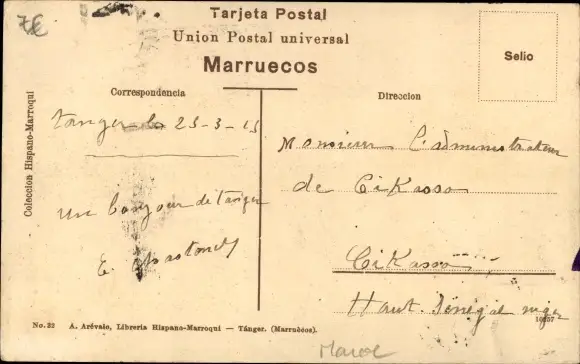 7€
Tarjeta Postal
Union Postal universal
Marruecos
Selio
Correspondencia
Direccion
Coleccion Hispano-Marroqui
Tanger le 25-3-15
un bonjour de Tanger
E.
Monsieur l'administrateur
de Cikasso
Cikasso
Haut Sénégal niger
No. 22 A. Arévalo, Libreria Hispano-Marroqui — Tánger. (Marruècos).
Maroc